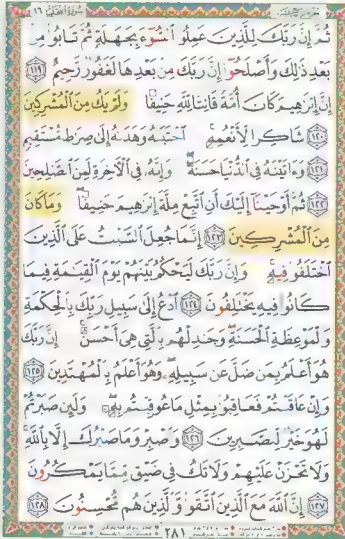 سُورَةُ النَّحْلِ ١٦
ثُمَّ إِنَّ رَبَّكَ لِلَّذِينَ عَمِلُوا۟ ٱلسُّوٓءَ بِجَهَـٰلَةٍ ثُمَّ تَابُوا۟ مِنۢ
بَعْدِ ذَٰلِكَ وَأَصْلَحُوٓا۟ إِنَّ رَبَّكَ مِنۢ بَعْدِهَا لَغَفُورٌ رَّحِيمٌ ١١٩
إِنَّ إِبْرَٰهِيمَ كَانَ أُمَّةً قَانِتًا لِّلَّهِ حَنِيفًا وَلَمْ يَكُ مِنَ ٱلْمُشْرِكِينَ
١٢٠ شَاكِرًا لِّأَنْعُمِهِ ٱجْتَبَىٰهُ وَهَدَىٰهُ إِلَىٰ صِرَٰطٍ مُّسْتَقِيمٍ
١٢١ وَءَاتَيْنَـٰهُ فِى ٱلدُّنْيَا حَسَنَةً وَإِنَّهُۥ فِى ٱلْـَٔاخِرَةِ لَمِنَ ٱلصَّـٰلِحِينَ
١٢٢ ثُمَّ أَوْحَيْنَآ إِلَيْكَ أَنِ ٱتَّبِعْ مِلَّةَ إِبْرَٰهِيمَ حَنِيفًا وَمَا كَانَ
مِنَ ٱلْمُشْرِكِينَ ١٢٣ إِنَّمَا جُعِلَ ٱلسَّبْتُ عَلَى ٱلَّذِينَ
ٱخْتَلَفُوا۟ فِيهِ وَإِنَّ رَبَّكَ لَيَحْكُمُ بَيْنَهُمْ يَوْمَ ٱلْقِيَـٰمَةِ فِيمَا
كَانُوا۟ فِيهِ يَخْتَلِفُونَ ١٢٤ ٱدْعُ إِلَىٰ سَبِيلِ رَبِّكَ بِٱلْحِكْمَةِ
وَٱلْمَوْعِظَةِ ٱلْحَسَنَةِ وَجَـٰدِلْهُم بِٱلَّتِى هِىَ أَحْسَنُ إِنَّ رَبَّكَ
هُوَ أَعْلَمُ بِمَن ضَلَّ عَن سَبِيلِهِۦ وَهُوَ أَعْلَمُ بِٱلْمُهْتَدِينَ ١٢٥
وَإِنْ عَاقَبْتُمْ فَعَاقِبُوا۟ بِمِثْلِ مَا عُوقِبْتُم بِهِۦ وَلَئِن صَبَرْتُمْ
لَهُوَ خَيْرٌ لِّلصَّـٰبِرِينَ ١٢٦ وَٱصْبِرْ وَمَا صَبْرُكَ إِلَّا بِٱللَّهِ
وَلَا تَحْزَنْ عَلَيْهِمْ وَلَا تَكُ فِى ضَيْقٍ مِّمَّا يَمْكُرُونَ
١٢٧ إِنَّ ٱللَّهَ مَعَ ٱلَّذِينَ ٱتَّقَوا۟ وَّٱلَّذِينَ هُم مُّحْسِنُونَ ١٢٨
٢٨١